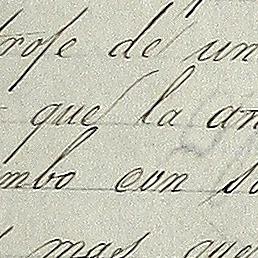 trofe de un
que la an
mbo con so
mas que